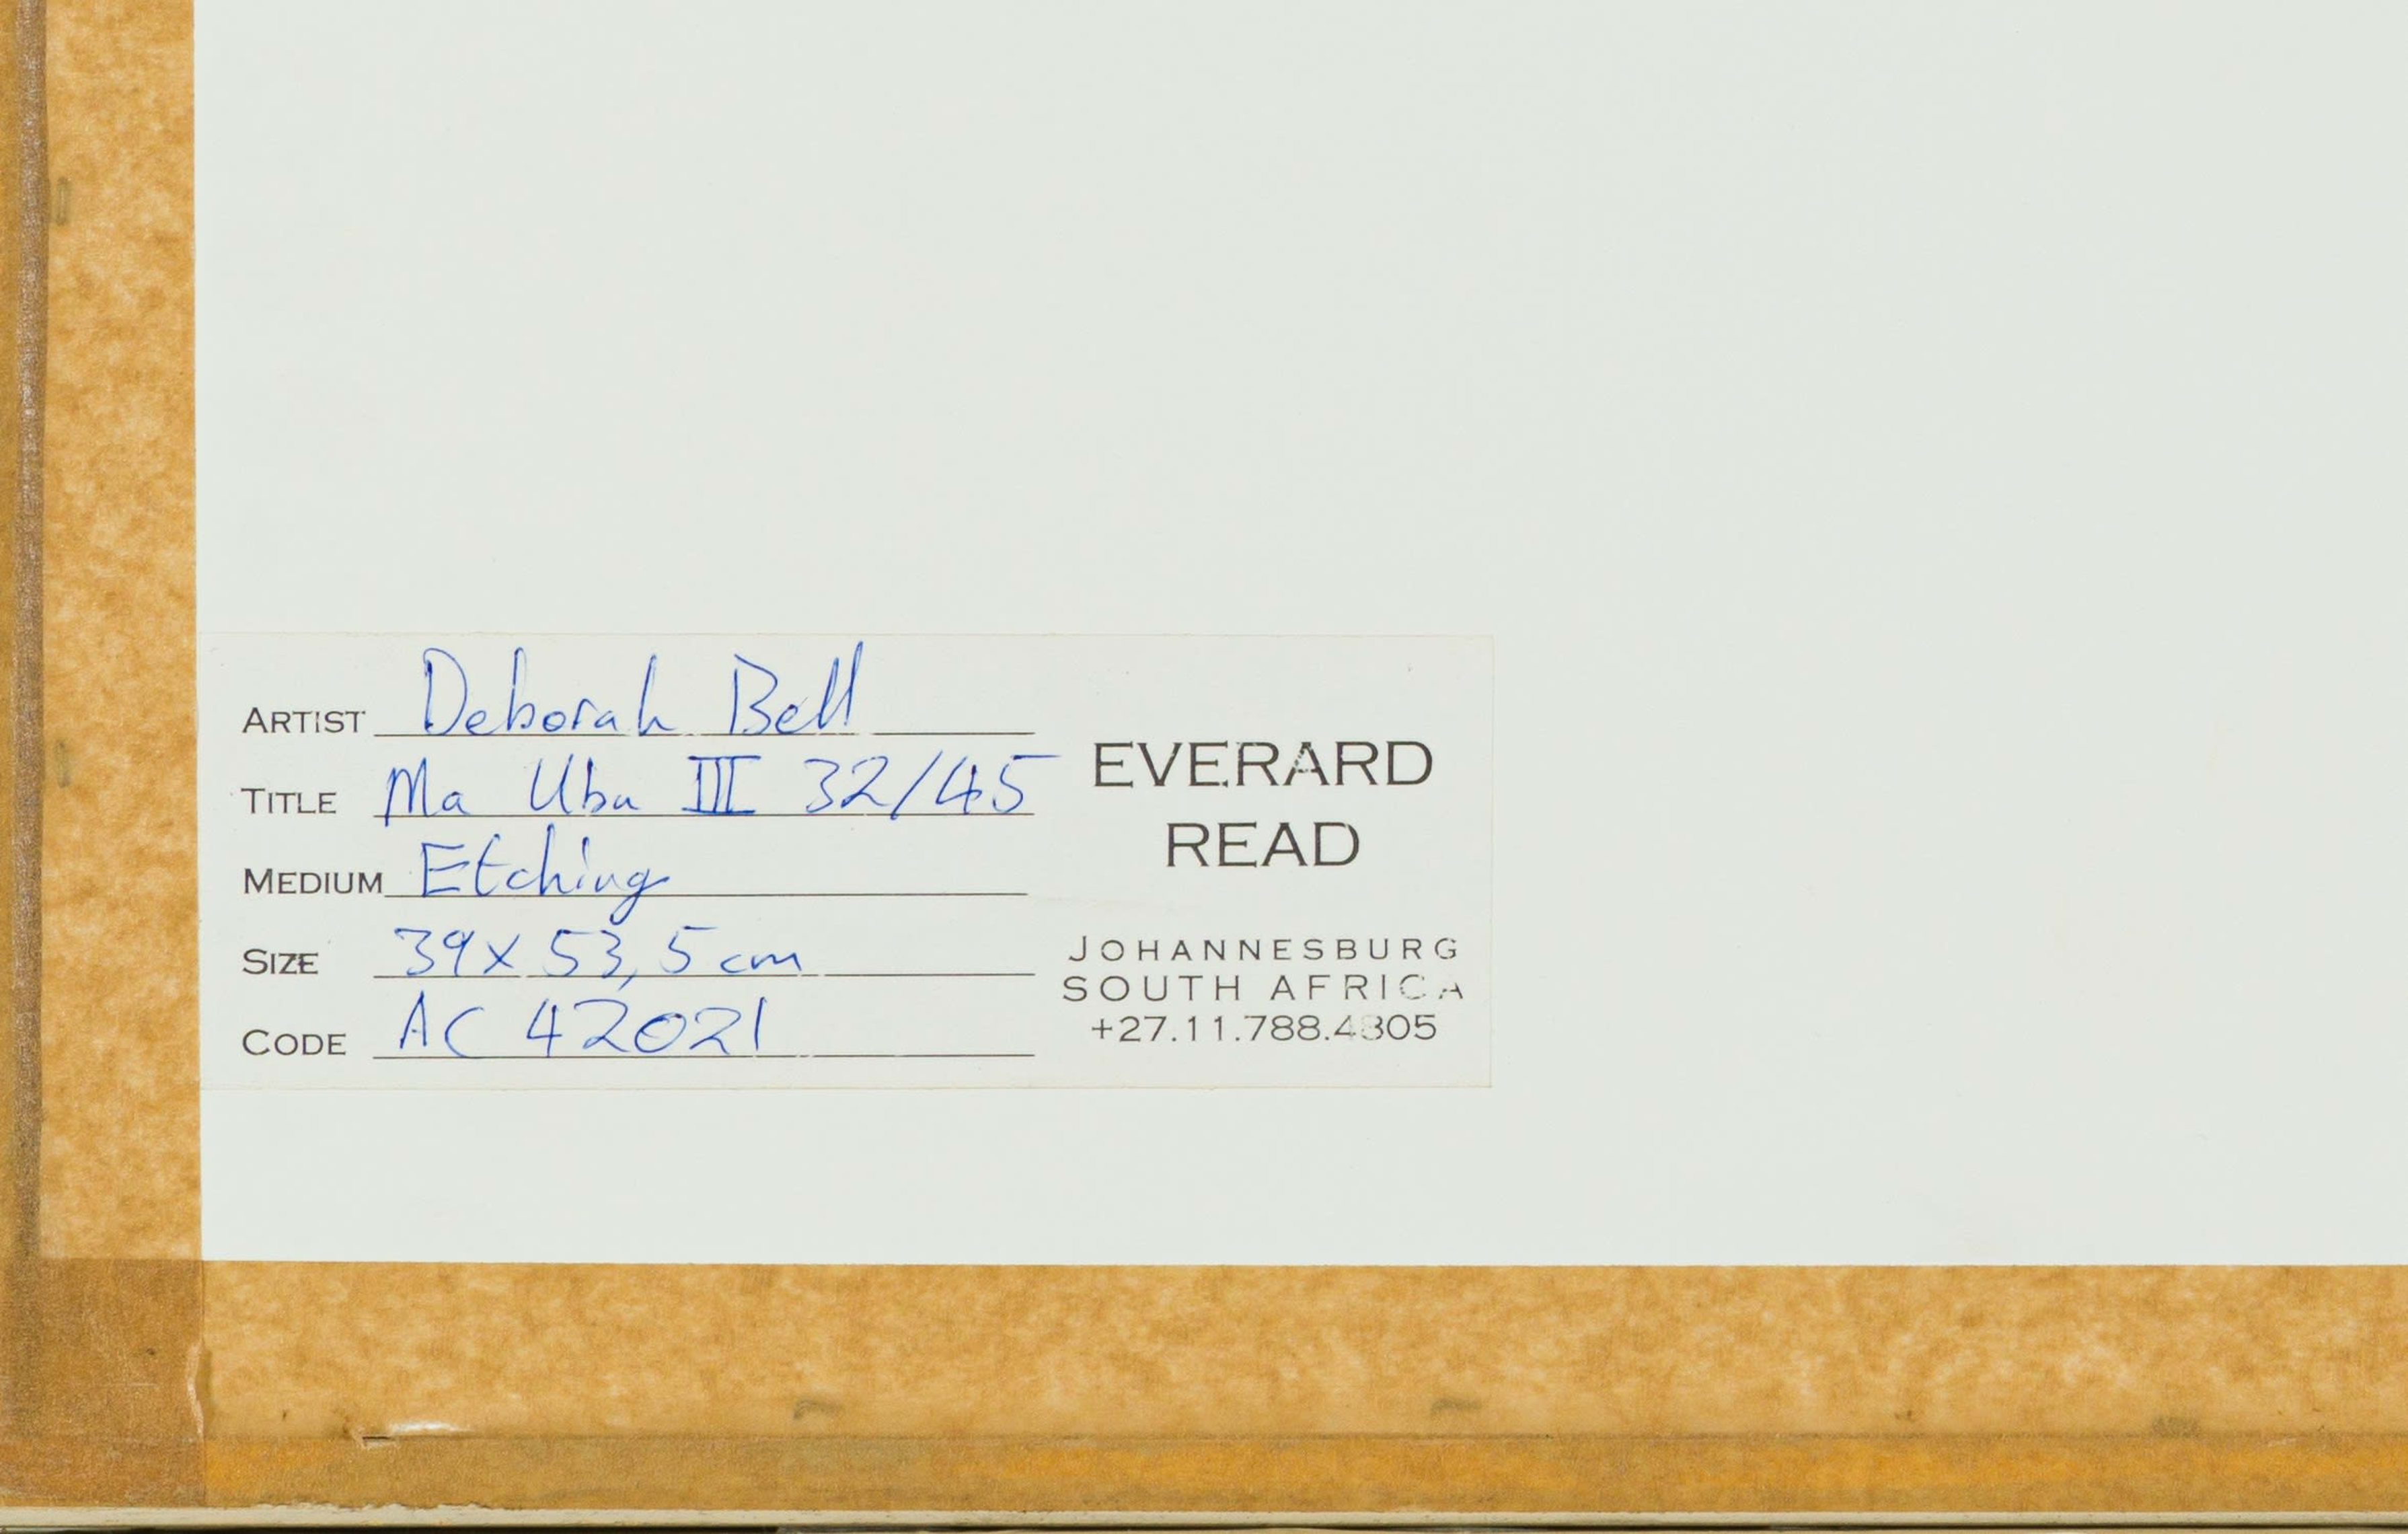 ARTIST Deborah Bell
TITLE Ma Ubu III 32/45
MEDIUM Etching
SIZE 39x 53,5 cm
CODE AC 42021
EVERARD
READ
JOHANNESBURG
SOUTH AFRICA
+27.11.788.4805